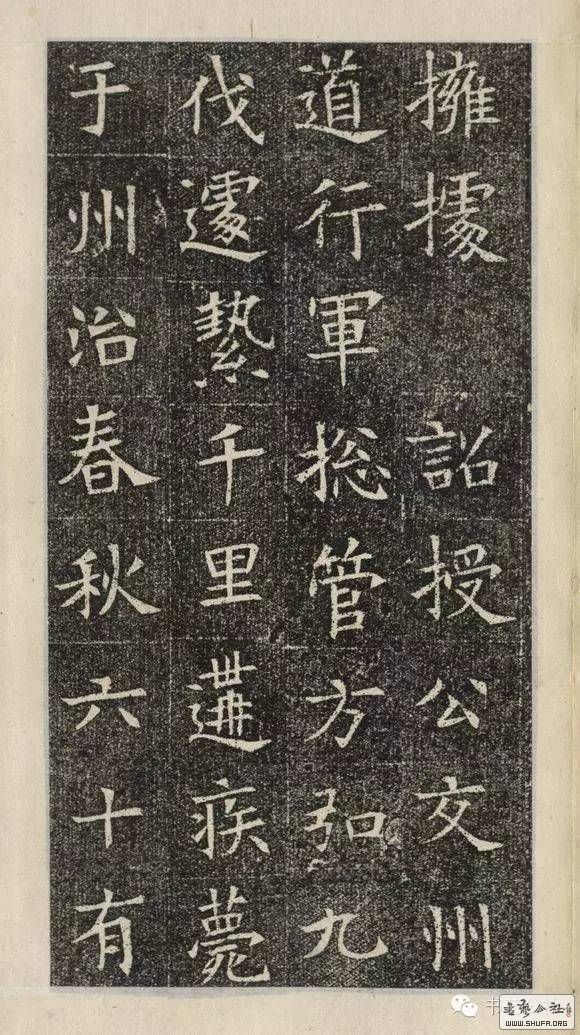 擁據 詔授公交州
道行軍捴管方弘九
伐遽縶千里遘疾薨
于州治春秋六十有
书
書藝公社
WWW.SHUFA.ORG